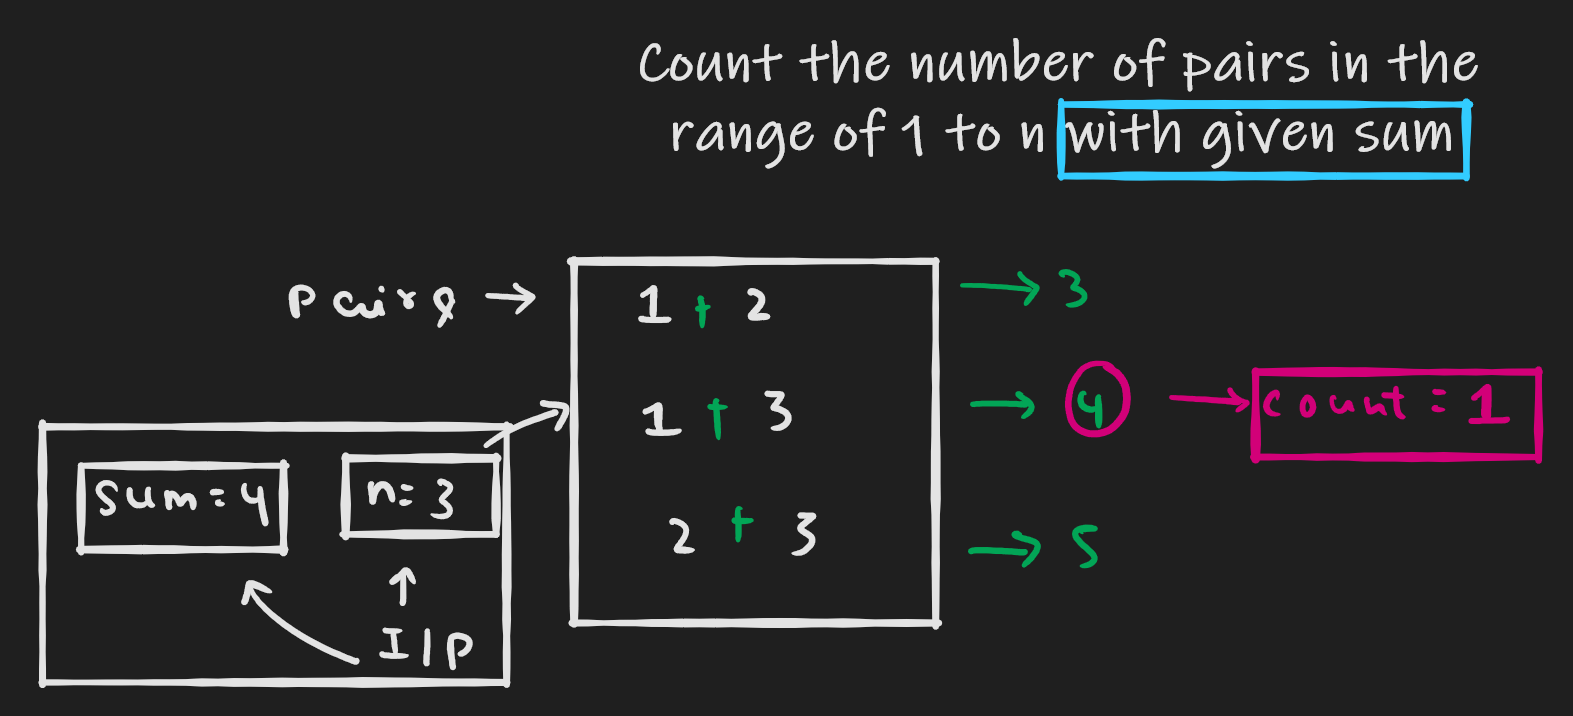 Count the number of pairs in the
range of 1 to n with given sum
pairs →
1 + 2 → 3
1 + 3 → 4 → count = 1
2 + 3 → 5
sum = 4
n = 3
I/P